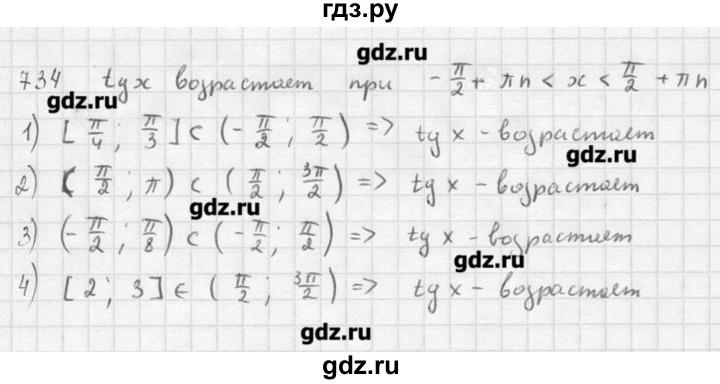 гдз.ру
gdz.ru
734 tg x возрастает при -π/2 + πn < x < π/2 + πn
gdz.ru
1) [π/4; π/3] ⊂ (-π/2; π/2) => tg x - возрастает
gdz.ru
2) (π/2; π) ⊂ (π/2; 3π/2) => tg x - возрастает
gdz.ru
3) (-π/2; π/8) ⊂ (-π/2; π/2) => tg x - возрастает
gdz.ru
4) [2; 3] ∈ (π/2; 3π/2) => tg x - возрастает
gdz.ru
gdz.ru